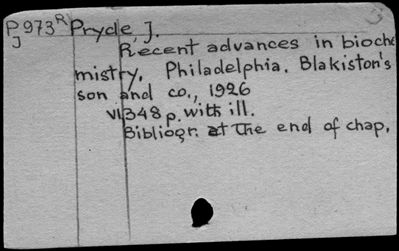 P973R Pryde, J.
J
Recent advances in bioche
mistry, Philadelphia, Blakiston's
son and co., 1926
VI, 348 p. with ill.
Bibliogr. at the end of chap.